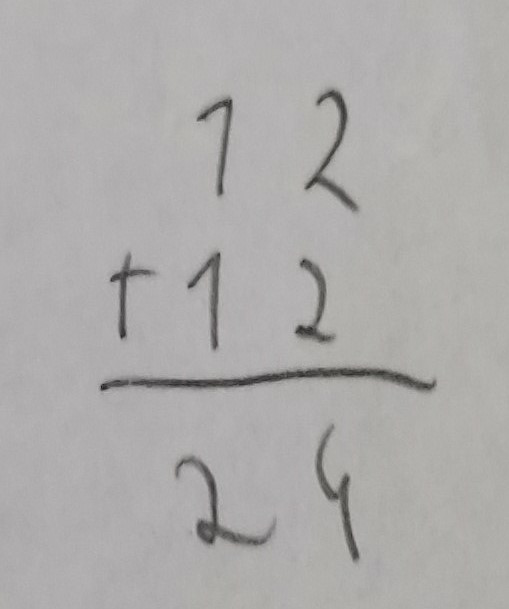 12
+12
24